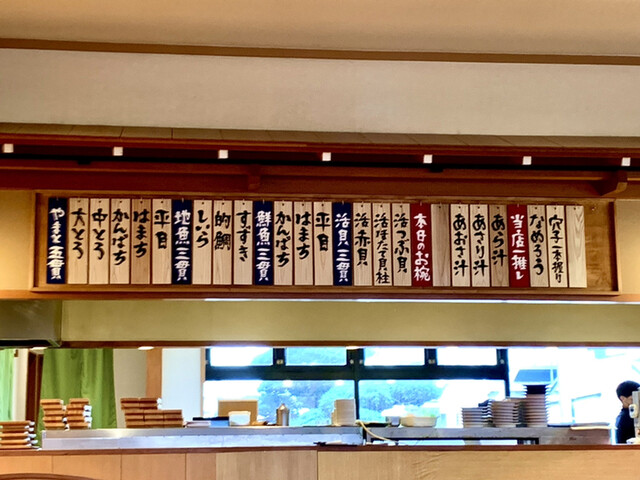 穴子一本握り
なめろう
当店一推し
あら汁
あさり汁
あおさ汁
本日のお椀
活つぶ貝
活ほたて貝柱
活赤貝
活貝三貫
平目
はまち
かんぱち
鮮魚三貫
すずき
的鯛
しいら
地魚三貫
平目
はまち
かんぱち
中とろ
大とろ
やまと五貫